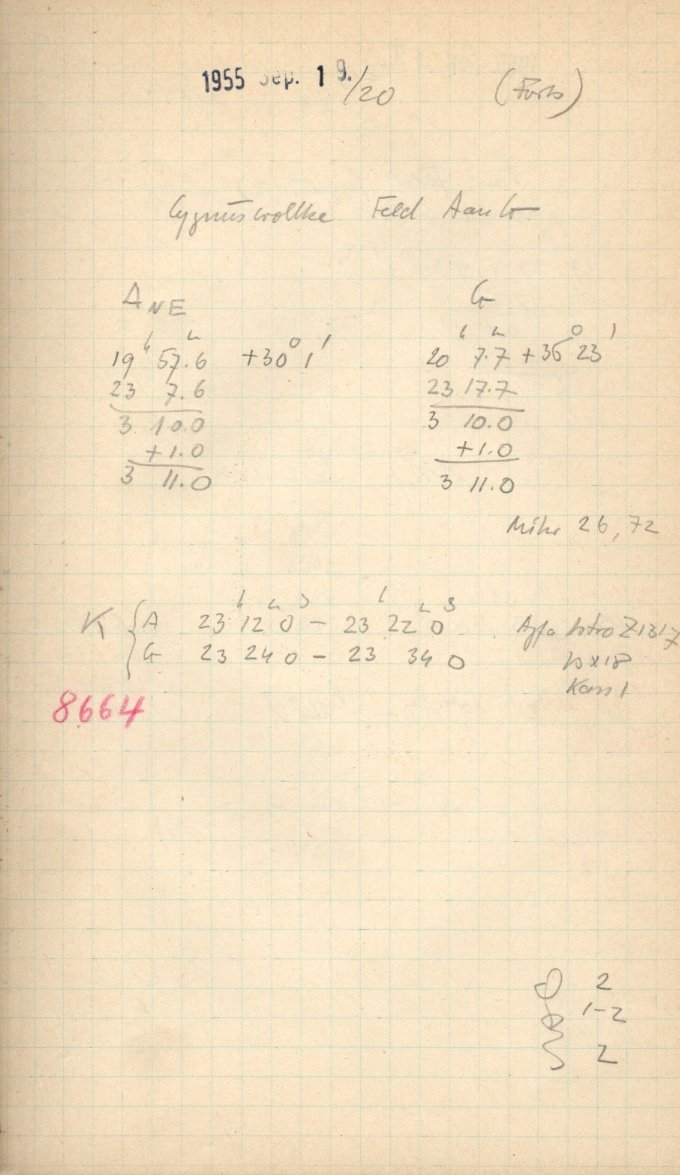 1955 Sep. 19./20 (Forts)
Cygnuswolke Feld A und G
A NE
19h 57.6 +30° 1'
23 7.6
3 10.0
+1.0
3 11.0
G
20h 7.7 +36° 23'
23 17.7
3 10.0
+1.0
3 11.0
Mikr 26,72
K { A 23h 12m 0s – 23h 22m 0s
G 23 24 0 – 23 34 0
Agfa Astro Z1317
13x18
Kass 1
8664
2
1-2
2